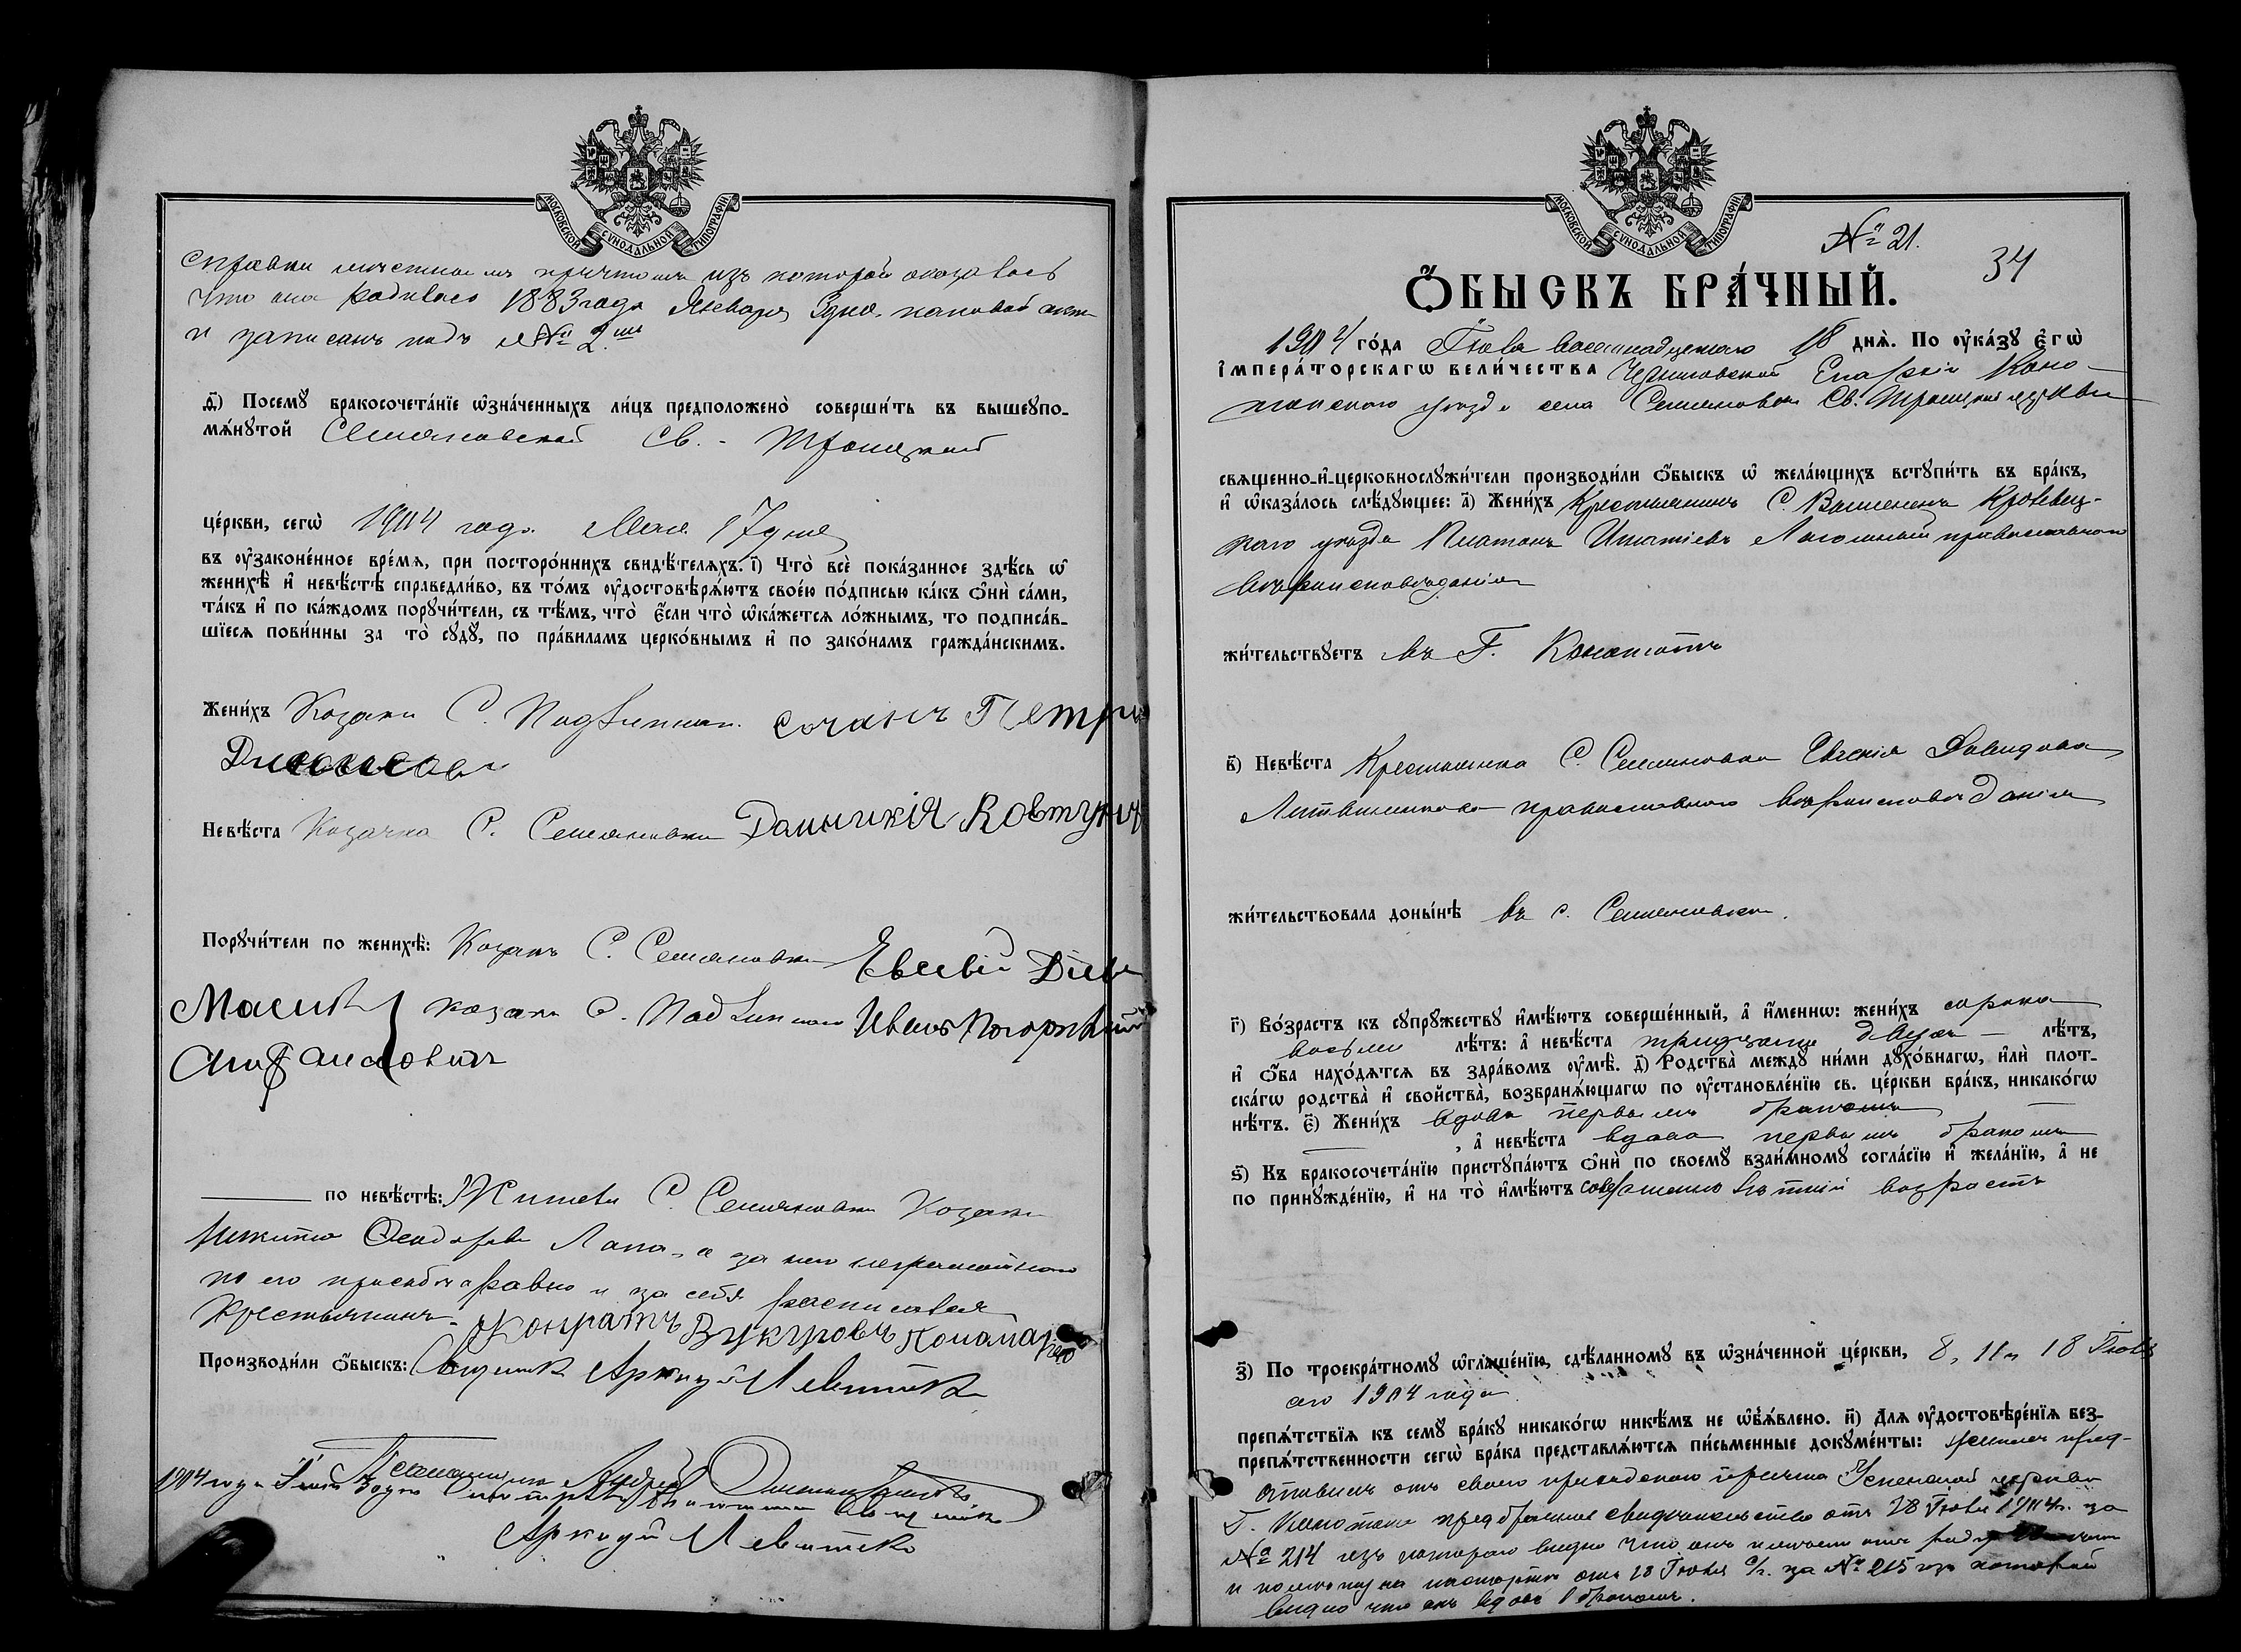 МОСКОВСКОЙ СѴНОДАЛЬНОЙ ТИПОГРАФІИ
справки мѣстнымъ причтомъ изъ которой оказалось
что она родилась 1883 года Января 3 дня.
и записанъ подъ № 2.мъ
д҃) Посемꙋ̀ бракосочета́нїе ѡ҆зна́ченныхъ ли́цъ предположено̀ соверши́ть въ вышеꙋпо-
мѧ́нꙋтой Семяновской Св. - Троицкой
це́ркви, сегѡ̀ 1904 года Мая 17 дня
въ ᲂу҆зако́ненное вре́мѧ, при посторо́ннихъ свидѣ́телѧхъ. і҃) Что̀ всѐ пока́занное здѣ́сь ѡ҆
женихѣ̀ и҆ невѣ́стѣ справедли́во, въ то́мъ ᲂу҆достовѣрѧ́ютъ свое́ю по́дписью ка́къ ѻ҆нѝ са́ми,
та́къ и҆ по ка́ждомъ порꙋчи́тели, съ тѣ́мъ, что̀ є҆́сли что̀ ѡ҆ка́жетсѧ ло́жнымъ, то подписа́в-
шїесѧ пови́нны за то̀ сꙋдꙋ̀, по пра́виламъ церко́внымъ и҆ по зако́намъ гражда́нскимъ.
Жени́хъ Козакъ С. Подлипнаго Петръ
Невѣ́ста Козачка С. Семяновки Домникія Ковтунъ
Порꙋчи́тели по женихѣ̀: Козакъ С. Семяновки Евсевій
козакъ С. Подлипнаго Иванъ
по невѣ́стѣ: Житель С. Семяновки Козакъ
Никита Феодоровъ Лапа, а за него неграмотнаго
по его просьбѣ а равно и за себя расписался
Крестьянинъ Конратъ
Производи́ли ѻ҆́быскъ: Священникъ Аркадій Левитскій
Псаломщикъ Андрей
1904 года Священникъ
Аркадій Левитскій
МОСКОВСКОЙ СѴНОДАЛЬНОЙ ТИПОГРАФІИ
№ 21.
34
Ѻ҆́БЫСКЪ БРА́ЧНЫЙ.
1904 го́да Іюля восемнадцатаго 18 днѧ̀. По ᲂу҆ка́зꙋ Є҆гѡ̀
І҆мпера́торскагѡ вели́чества Черниговской Епархіи Коно-
топскаго уѣзда села Семяновки Св. Троицкой церкви
свѧщенно-и҆-церковнослꙋжи́тели производи́ли ѻ҆́быскъ ѡ҆ жела́ющихъ встꙋпи́ть въ бра́къ,
и҆ ѡ҆каза́лось слѣ́дꙋющее: а҃) Жени́хъ Крестьянинъ С. Кролевец-
каго уѣзда Платонъ Игнатіевъ православнаго
вѣроисповѣданія
жи́тельствꙋетъ въ Г. Конотопѣ
в҃) Невѣ́ста Крестьянка С. Семяновки Евгенія Давидова
Литвиненкова православнаго вѣроисповѣданія
жи́тельствовала доны́нѣ въ с. Семяновкѣ.
г҃) Во́зрастъ къ сꙋпрꙋ́жествꙋ и҆мѣ́ютъ соверше́нный, а҆ и҆́менню: жени́хъ сорока
восьми лѣ́тъ: а҆ невѣ́ста тридцати двухъ — лѣ́тъ,
и҆ ѻ҆́ба нахо́дѧтсѧ въ здра́вомъ ᲂу҆мѣ̀. д҃) Родства̀ междꙋ̀ ни́ми дꙋхо́внагѡ, и҆лѝ плот-
ска́гѡ родства̀ и҆ свойства̀, возбранѧ́ющагѡ по ᲂу҆становле́нїю св. це́ркви бра́къ, никако́гѡ
нѣ́тъ. є҃) Жени́хъ вдовъ первымъ бракомъ —
— , а҆ невѣ́ста вдова первымъ бракомъ
ѕ҃) Къ бракосочета́нїю пристꙋпа́ютъ ѻ҆нѝ по своемꙋ̀ взаи́мномꙋ согла́сїю и҆ жела́нїю, а҆ не
по принꙋжде́нїю, и҆ на то̀ и҆мѣ́ютъ совершеннолѣтній возрастъ
з҃) По троекра́тномꙋ ѡ҆глаше́нїю, сдѣ́ланномꙋ въ ѡ҆зна́ченной це́ркви, 8, 11 и 18 Іюля
сего 1904 года
препѧ́тствїѧ къ семꙋ̀ бра́кꙋ никако́гѡ никѣ́мъ не ѡ҆б̾ѧ́влено. и҃) Длѧ ᲂу҆достовѣре́нїѧ без-
препѧ́тственности сегѡ̀ бра́ка представлѧ́ютсѧ пи́сьменные докꙋме́нты: женихъ пред-
ставилъ отъ своего приходскаго причта Успенской церкви
Г. Конотопа предбрачное свидѣтельство отъ 18 Іюля 1904 г. за
№ 214 изъ котораго видно что онъ
и отъ 18 Іюля с/г. за № 215 изъ которой
видно что онъ вдовъ 1 бракомъ.